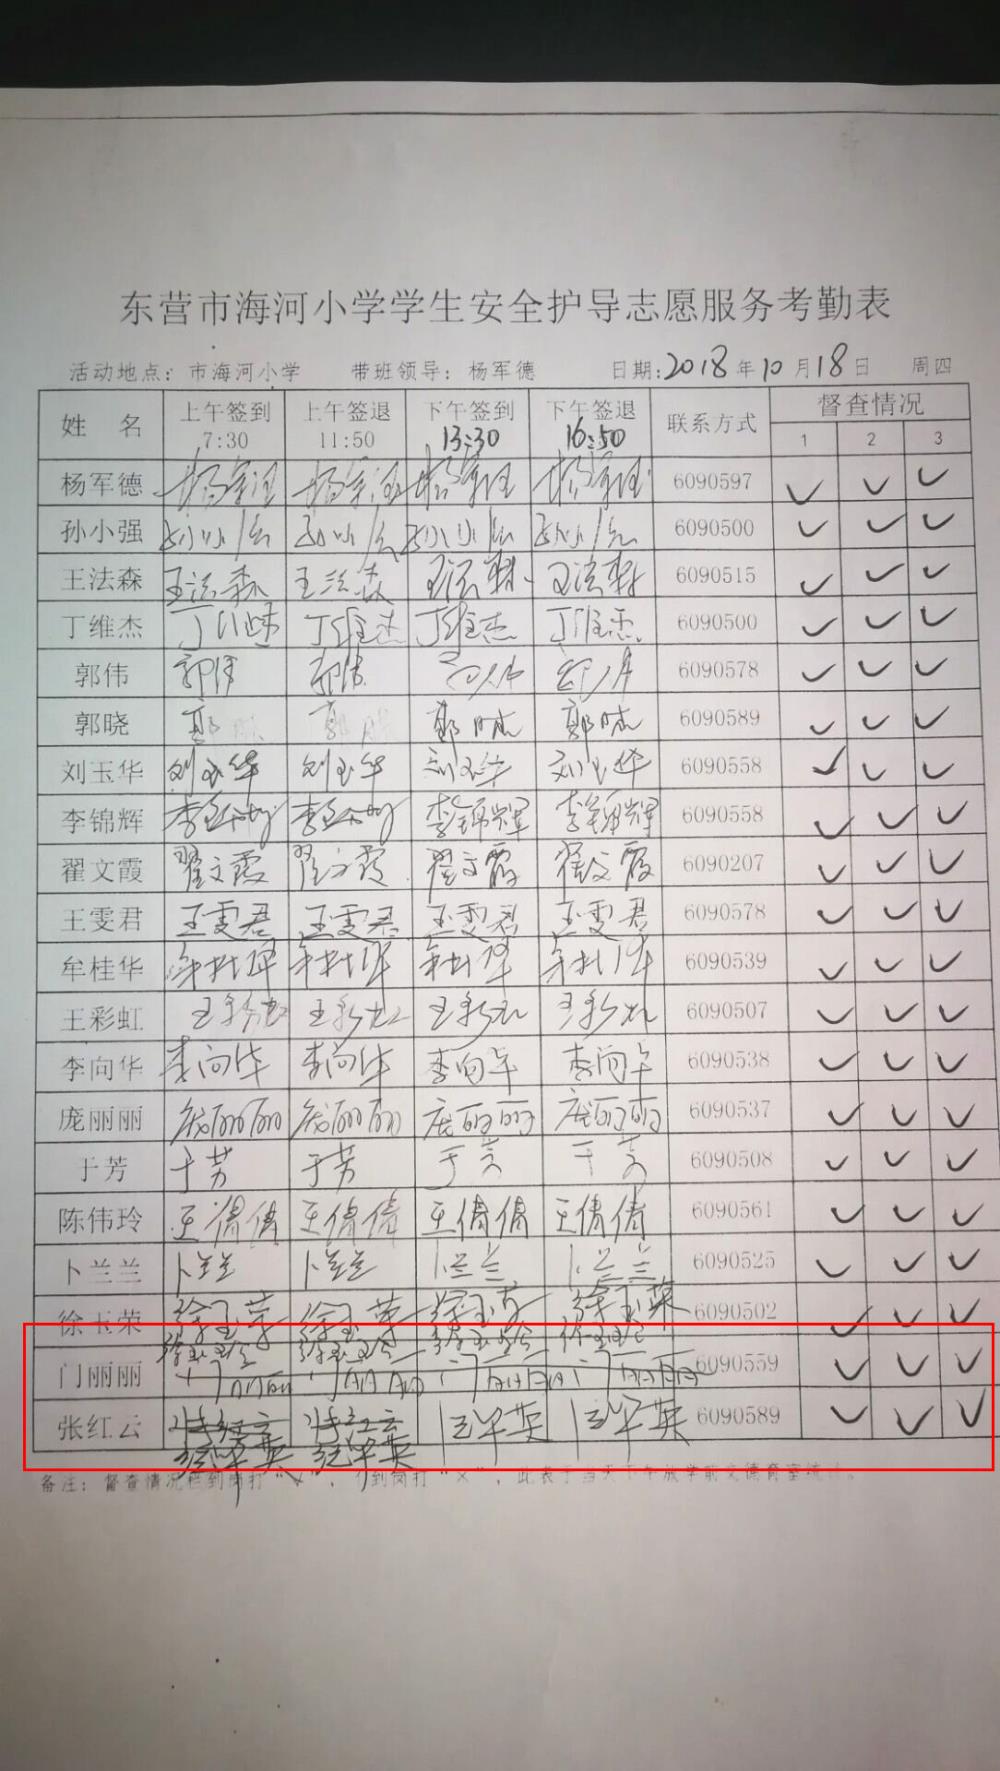 东营市海河小学学生安全护导志愿服务考勤表
活动地点：市海河小学 带班领导：杨军德 日期:2018年10月18日 周四
姓 名 上午签到 7:30 上午签退 11:50 下午签到 13:30 下午签退 16:50 联系方式 督查情况
1 2 3
杨军德 6090597 ✓ ✓ ✓
孙小强 6090500 ✓ ✓ ✓
王法森 王法森 王法森 王法森 王法森 6090515 ✓ ✓ ✓
丁维杰 丁维杰 丁维杰 丁维杰 丁维杰 6090500 ✓ ✓ ✓
郭伟 郭伟 郭伟 6090578 ✓ ✓ ✓
郭晓 6090589 ✓ ✓ ✓
刘玉华 刘玉华 刘玉华 刘玉华 刘玉华 6090558 ✓ ✓ ✓
李锦辉 李锦辉 李锦辉 李锦辉 李锦辉 6090558 ✓ ✓ ✓
翟文霞 翟文霞 翟文霞 翟文霞 翟文霞 6090207 ✓ ✓ ✓
王雯君 王雯君 王雯君 王雯君 王雯君 6090578 ✓ ✓ ✓
牟桂华 牟桂华 牟桂华 牟桂华 牟桂华 6090539 ✓ ✓ ✓
王彩虹 王彩虹 王彩虹 王彩虹 王彩虹 6090507 ✓ ✓ ✓
李向华 李向华 李向华 李向华 李向华 6090538 ✓ ✓ ✓
庞丽丽 庞丽丽 庞丽丽 庞丽丽 庞丽丽 6090537 ✓ ✓ ✓
于芳 于芳 于芳 于芳 于芳 6090508 ✓ ✓ ✓
陈伟玲 王倩倩 王倩倩 王倩倩 王倩倩 6090561 ✓ ✓ ✓
卜兰兰 卜兰兰 卜兰兰 卜兰兰 卜兰兰 6090525 ✓ ✓ ✓
徐玉荣 徐玉荣 徐玉荣 徐玉荣 徐玉荣 6090502 ✓ ✓ ✓
门丽丽 门丽丽 门丽丽 门丽丽 门丽丽 6090559 ✓ ✓ ✓
张红云 张红云 张红云 6090589 ✓ ✓ ✓
备注：督查情况栏到岗打“✓”，